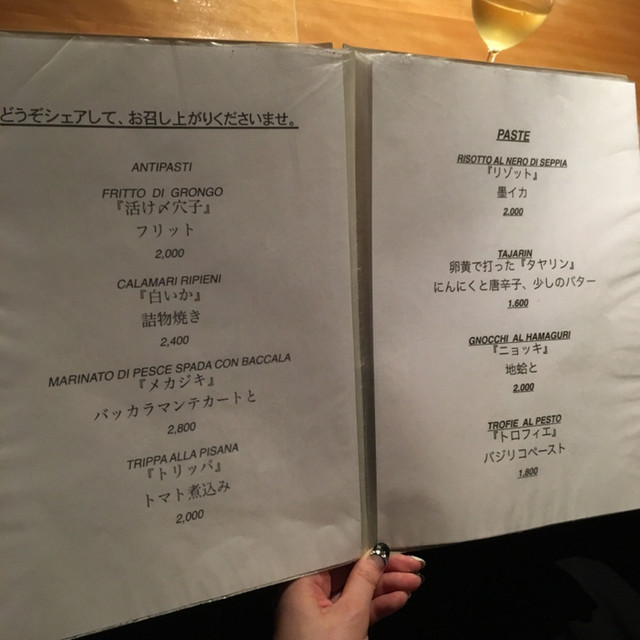 どうぞシェアして、お召し上がりくださいませ。
ANTIPASTI
FRITTO DI GRONGO
『活け〆穴子』
フリット
2,000
CALAMARI RIPIENI
『白いか』
詰物焼き
2,400
MARINATO DI PESCE SPADA CON BACCALA
『メカジキ』
バッカラマンテカートと
2,800
TRIPPA ALLA PISANA
『トリッパ』
トマト煮込み
2,000
PASTE
RISOTTO AL NERO DI SEPPIA
『リゾット』
墨イカ
2,000
TAJARIN
卵黄で打った『タヤリン』
にんにくと唐辛子、少しのバター
1,600
GNOCCHI AL HAMAGURI
『ニョッキ』
地蛤と
2,000
TROFIE AL PESTO
『トロフィエ』
バジリコペースト
1,800